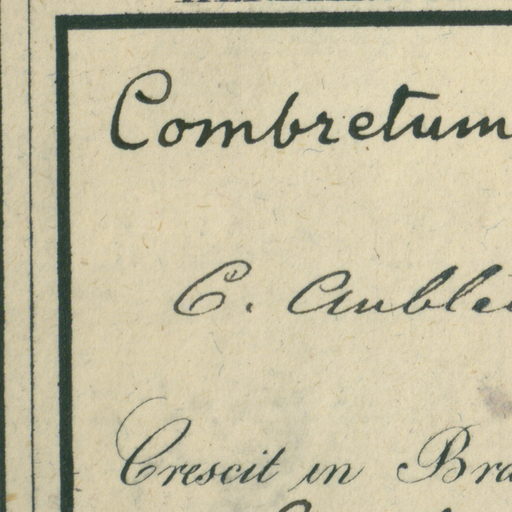 Combretum
C. Auble
Crescit in Bra